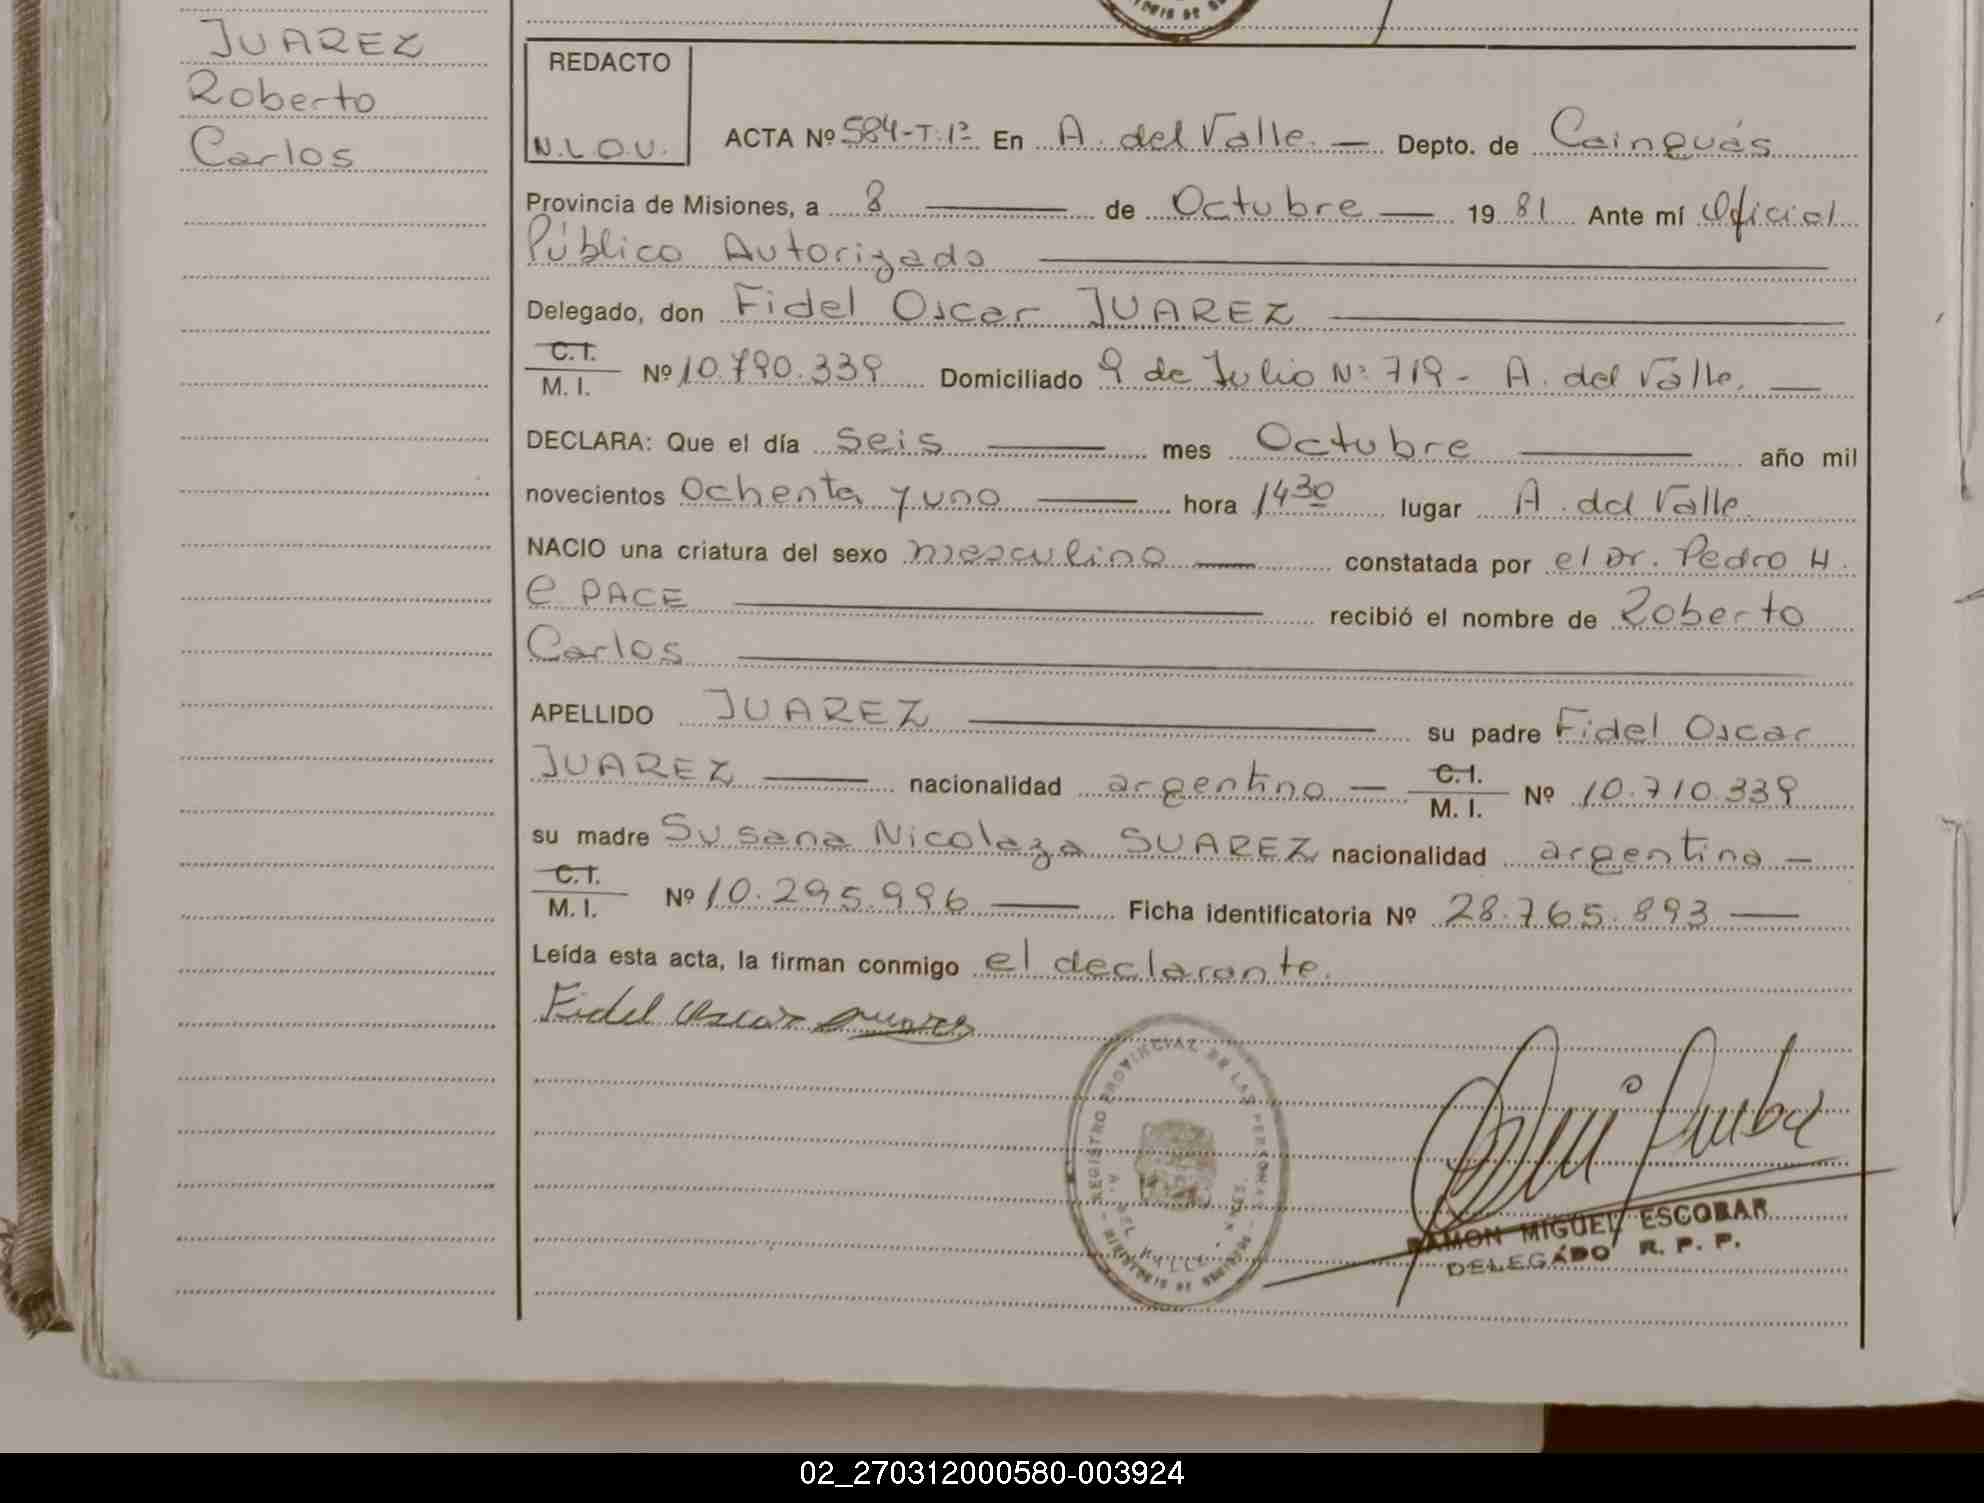 JUAREZ
Roberto
Carlos
REDACTO
N.L.O.U.
ACTA Nº 584-T:1º En A. del Valle. — Depto. de Cainguás
Provincia de Misiones, a 8 — de Octubre — 19 81 Ante mí Oficial
Público Autorizado
Delegado, don Fidel Oscar JUAREZ
C.I.
M. I. Nº 10.790.339 Domiciliado 9 de Julio Nº 719 - A. del Valle. —
DECLARA: Que el día seis — mes Octubre — año mil
novecientos ochenta y uno — hora 1430 lugar A. del Valle
NACIO una criatura del sexo masculino — constatada por el Dr. Pedro H.
e PACE — recibió el nombre de Roberto
Carlos
APELLIDO JUAREZ — su padre Fidel Oscar
JUAREZ — nacionalidad argentino — C.I. M. I. Nº 10.710.339
su madre Susana Nicolaza SUAREZ nacionalidad argentina —
C.I.
M. I. Nº 10.295.996 — Ficha identificatoria Nº 28.765.893 —
Leída esta acta, la firman conmigo el declarante.
Fidel Oscar Juarez
REGISTRO PROVINCIAL DE LAS PERSONAS
A. DEL VALLE
MINISTERIO DE GOBIERNO
RAMON MIGUEL ESCOBAR
DELEGADO R. P. P.
02_270312000580-003924